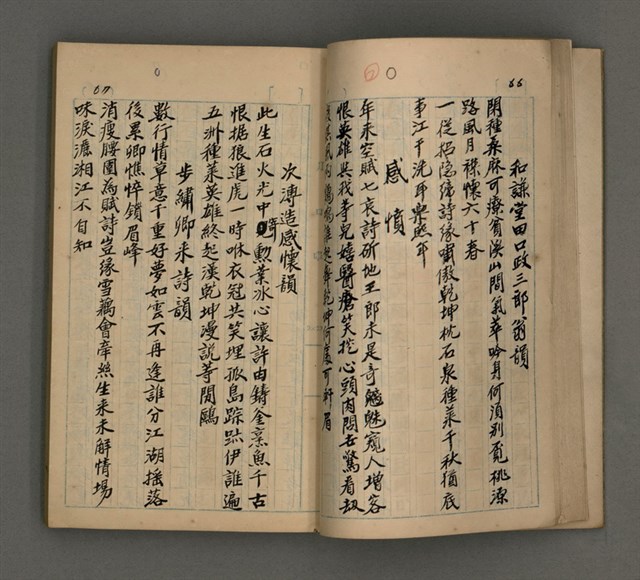 66
和謙堂田口政三郎翁韻
閑種桑麻可療貧溪山閒氣萃吟身何須別覓桃源
路風月襟懷六十春
一從招隱傍詩緣嘯傲乾坤枕石泉種菜千秋猶底
事江干洗耳樂熙年
感憤
年未空賦七哀詩斫地王郎未是奇魑魅窺人增客
恨英雄與我等兒嬉醫瘡笑挖心頭肉悶去驚看劫
起舞乾坤何處可軒眉
67
次溥造感懷韻
此生石火光中寄勳業冰心讓許由鑄釜烹魚千古
恨据狼進虎一時咻衣冠共笑埋孤島踪跡伊誰遍
五洲種菜英雄終起漢乾坤漫説等閒鷗
步繡卿来詩韻
數行情草意千重好夢如雲不再逢誰分江湖搖落
後累卿憔悴鎖眉峰
消瘦腰圍為賦詩豈緣雪藕會牽絲生来未解情場
味淚灑湘江不自知